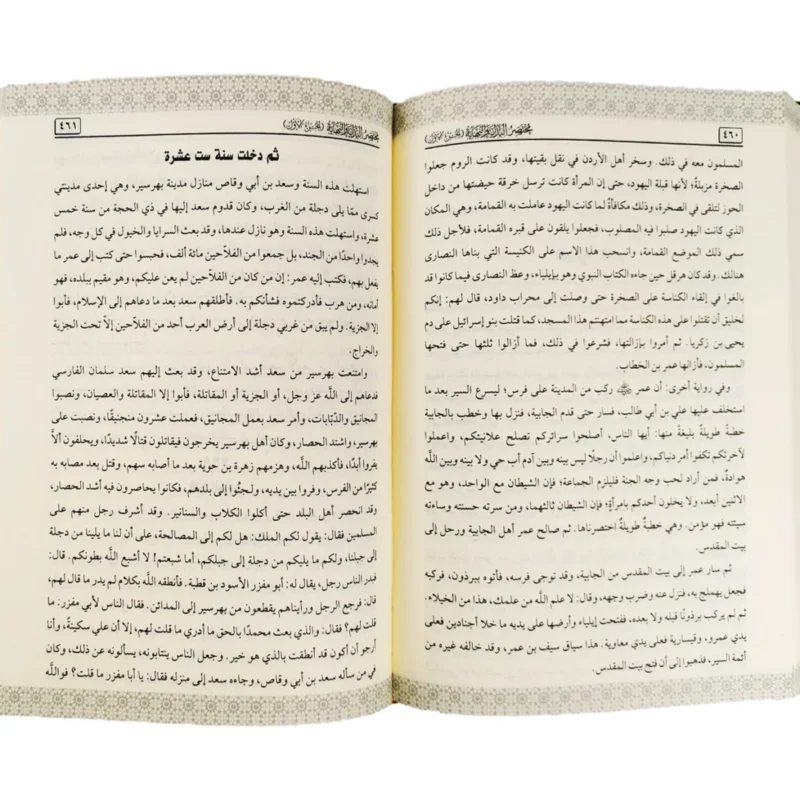 ٤٦٠
مختصر البداية والنهاية (الجزء الأول)
المسلمون معه في ذلك. وسخر أهل الأردن في نقل بقيتها، وقد كانت الروم جعلوا
الصخرة مزبلةً؛ لأنها قبلة اليهود، حتى إن المرأة كانت ترسل خرقة حيضتها من داخل
الحوز لتلقى في الصخرة، وذلك مكافأةً لما كانت اليهود عاملت به القمامة، وهي المكان
الذي كانت اليهود صلبوا فيه المصلوب، فجعلوا يلقون على قبره القمامة، فلأجل ذلك
سمي ذلك الموضع القمامة، وانسحب هذا الاسم على الكنيسة التي بناها النصارى
هنالك. وقد كان هرقل حين جاءه الكتاب النبوي وهو بإيلياء، وعظ النصارى فيما كانوا قد
بالغوا في إلقاء الكناسة على الصخرة حتى وصلت إلى محراب داود، قال لهم: إنكم
لخليق أن تقتلوا على هذه الكناسة مما امتهنتم هذا المسجد، كما قتلت بنو إسرائيل على دم
يحيى بن زكريا. ثم أمروا بإزالتها، فشرعوا في ذلك، فما أزالوا ثلثها حتى فتحها
المسلمون، فأزالها عمر بن الخطاب.
وفي رواية أخرى: أن عمر ﷺ ركب من المدينة على فرس؛ ليسرع السير بعد ما
استخلف عليها علي بن أبي طالب، فسار حتى قدم الجابية، فنزل بها وخطب بالجابية
خطبةً طويلةً بليغةً منها: أيها الناس، أصلحوا سرائركم تصلح علانيتكم، واعملوا
لآخرتكم تكفوا أمر دنياكم، واعلموا أن رجلًا ليس بينه وبين آدم أب حي ولا بينه وبين الله
هوادةٌ، فمن أراد لحب وجه الجنة فليلزم الجماعة؛ فإن الشيطان مع الواحد، وهو مع
الاثنين أبعد، ولا يخلون أحدكم بامرأةٍ؛ فإن الشيطان ثالثهما، ومن سرته حسنته وساءته
سيئته فهو مؤمن. وهي خطبةٌ طويلةٌ اختصرناها. ثم صالح عمر أهل الجابية ورحل إلى
بيت المقدس.
ثم سار عمر إلى بيت المقدس من الجابية، وقد توجى فرسه، فأتوه ببرذون، فركبه
فجعل يهملج به، فنزل عنه وضرب وجهه، وقال: لا علم الله من علمك، هذا من الخيلاء.
ثم لم يركب برذونًا قبله ولا بعده، ففتحت إيلياء وأرضها على يديه ما خلا أجنادين فعلى
يدي عمرو، وقيسارية فعلى يدي معاوية. هذا سياق سيف بن عمر، وقد خالفه غيره من
أئمة السير، فذهبوا إلى أن فتح بيت المقدس.
مختصر البداية والنهاية (الجزء الأول)
٤٦١
ثم دخلت سنة ست عشرة
استهلت هذه السنة وسعد بن أبي وقاص منازل مدينة بهرسير، وهي إحدى مدينتي
كسرى ممّا يلي دجلة من الغرب، وكان قدوم سعد إليها في ذي الحجة من سنة خمس
عشرة، واستهلت هذه السنة وهو نازل عندها، وقد بعث السرايا والخيول في كل وجه، فلم
يجدوا واحدًا من الجند، بل جمعوا من الفلاّحين مائة ألف، فحبسوا حتى كتب إلى عمر ما
يفعل بهم، فكتب إليه عمر: إن من كان من الفلاّحين لم يعن عليكم، وهو مقيم ببلده، فهو
أمانه، ومن هرب فأدركتموه فشأنكم به. فأطلقهم سعد بعد ما دعاهم إلى الإسلام، فأبوا
إلا الجزية. ولم يبق من غربي دجلة إلى أرض العرب أحد من الفلاّحين إلاّ تحت الجزية
والخراج.
وامتنعت بهرسير من سعد أشد الامتناع، وقد بعث إليهم سعد سلمان الفارسي
فدعاهم إلى الله عز وجل، أو الجزية أو المقاتلة، فأبوا إلا المقاتلة والعصيان، ونصبوا
المجانيق والدّبّابات، وأمر سعد بعمل المجانيق، فعملت عشرون منجنيقًا، ونصبت على
بهرسير، واشتد الحصار، وكان أهل بهرسير يخرجون فيقاتلون قتالًا شديدًا، ويحلفون ألاّ
يفروا أبدًا، فأكذبهم الله، وهزمهم زهرة بن حوية بعد ما أصابه سهم، وقتل بعد مصابه به
كثيرًا من الفرس، وفروا بين يديه، ولجئوا إلى بلدهم، فكانوا يحاصرون فيه أشد الحصار،
وقد انحصر أهل البلد حتى أكلوا الكلاب والسنانير. وقد أشرف رجل منهم على
المسلمين فقال: يقول لكم الملك: هل لكم إلى المصالحة، على أن لنا ما يلينا من دجلة
إلى جبلنا، ولكم ما يليكم من دجلة إلى جبلكم، أما شبعتم! لا أشبع الله بطونكم. قال:
فبدر الناس رجل، يقال له: أبو مفزر الأسود بن قطبة. فأنطقه الله بكلام لم يدر ما قال لهم،
قال: فرجع الرجل ورأيناهم يقطعون من بهرسير إلى المدائن. فقال الناس لأبي مفزر: ما
قلت لهم؟ فقال: والذي بعث محمدًا بالحق ما أدري ما قلت لهم، إلا أن علي سكينةً، وأنا
أرجو أن أكون قد أنطقت بالذي هو خير. وجعل الناس ينتابونه، يسألونه عن ذلك، وكان
في من سأله سعد بن أبي وقاص، وجاءه سعد إلى منزله فقال: يا أبا مفزر ما قلت؟ فوالله